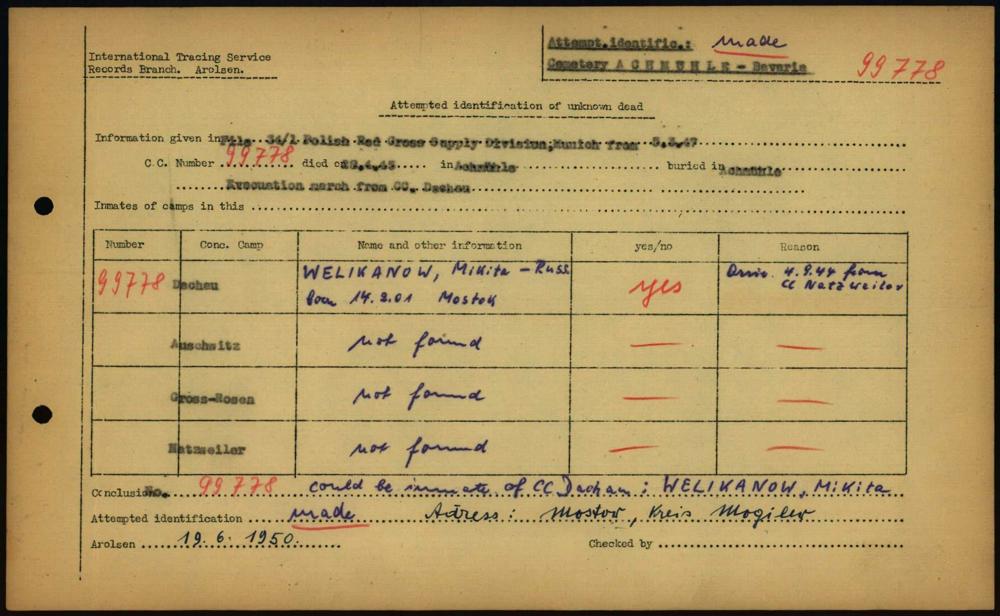 International Tracing Service
Records Branch. Arolsen.
Attempt.identific.: made
Cemetery A C H M Ü H L E - Bavaria
99778
Attempted identification of unknown dead
Information given in File 34/1 Polish Red Cross Supply Division, Munich from 5.3.47
C.C. Number 99778 died on in Achmühle buried in Achmühle
Evacuation march from CC. Dachau
Inmates of camps in this
Number Conc. Camp Name and other information yes/no Reason
99778 Dachau WELIKANOW, Mikita - Russ. yes Arriv. 4.9.44 from
born 14.2.01 Mostok CC Natzweiler
Auschwitz not found — —
Gross-Rosen not found — —
Natzweiler not found — —
Conclusion No. 99778 could be inmate of CC Dachau: WELIKANOW, Mikita
Attempted identification made Adress: Mostow, Kreis Mogilev
Arolsen 19.6.1950. Checked by